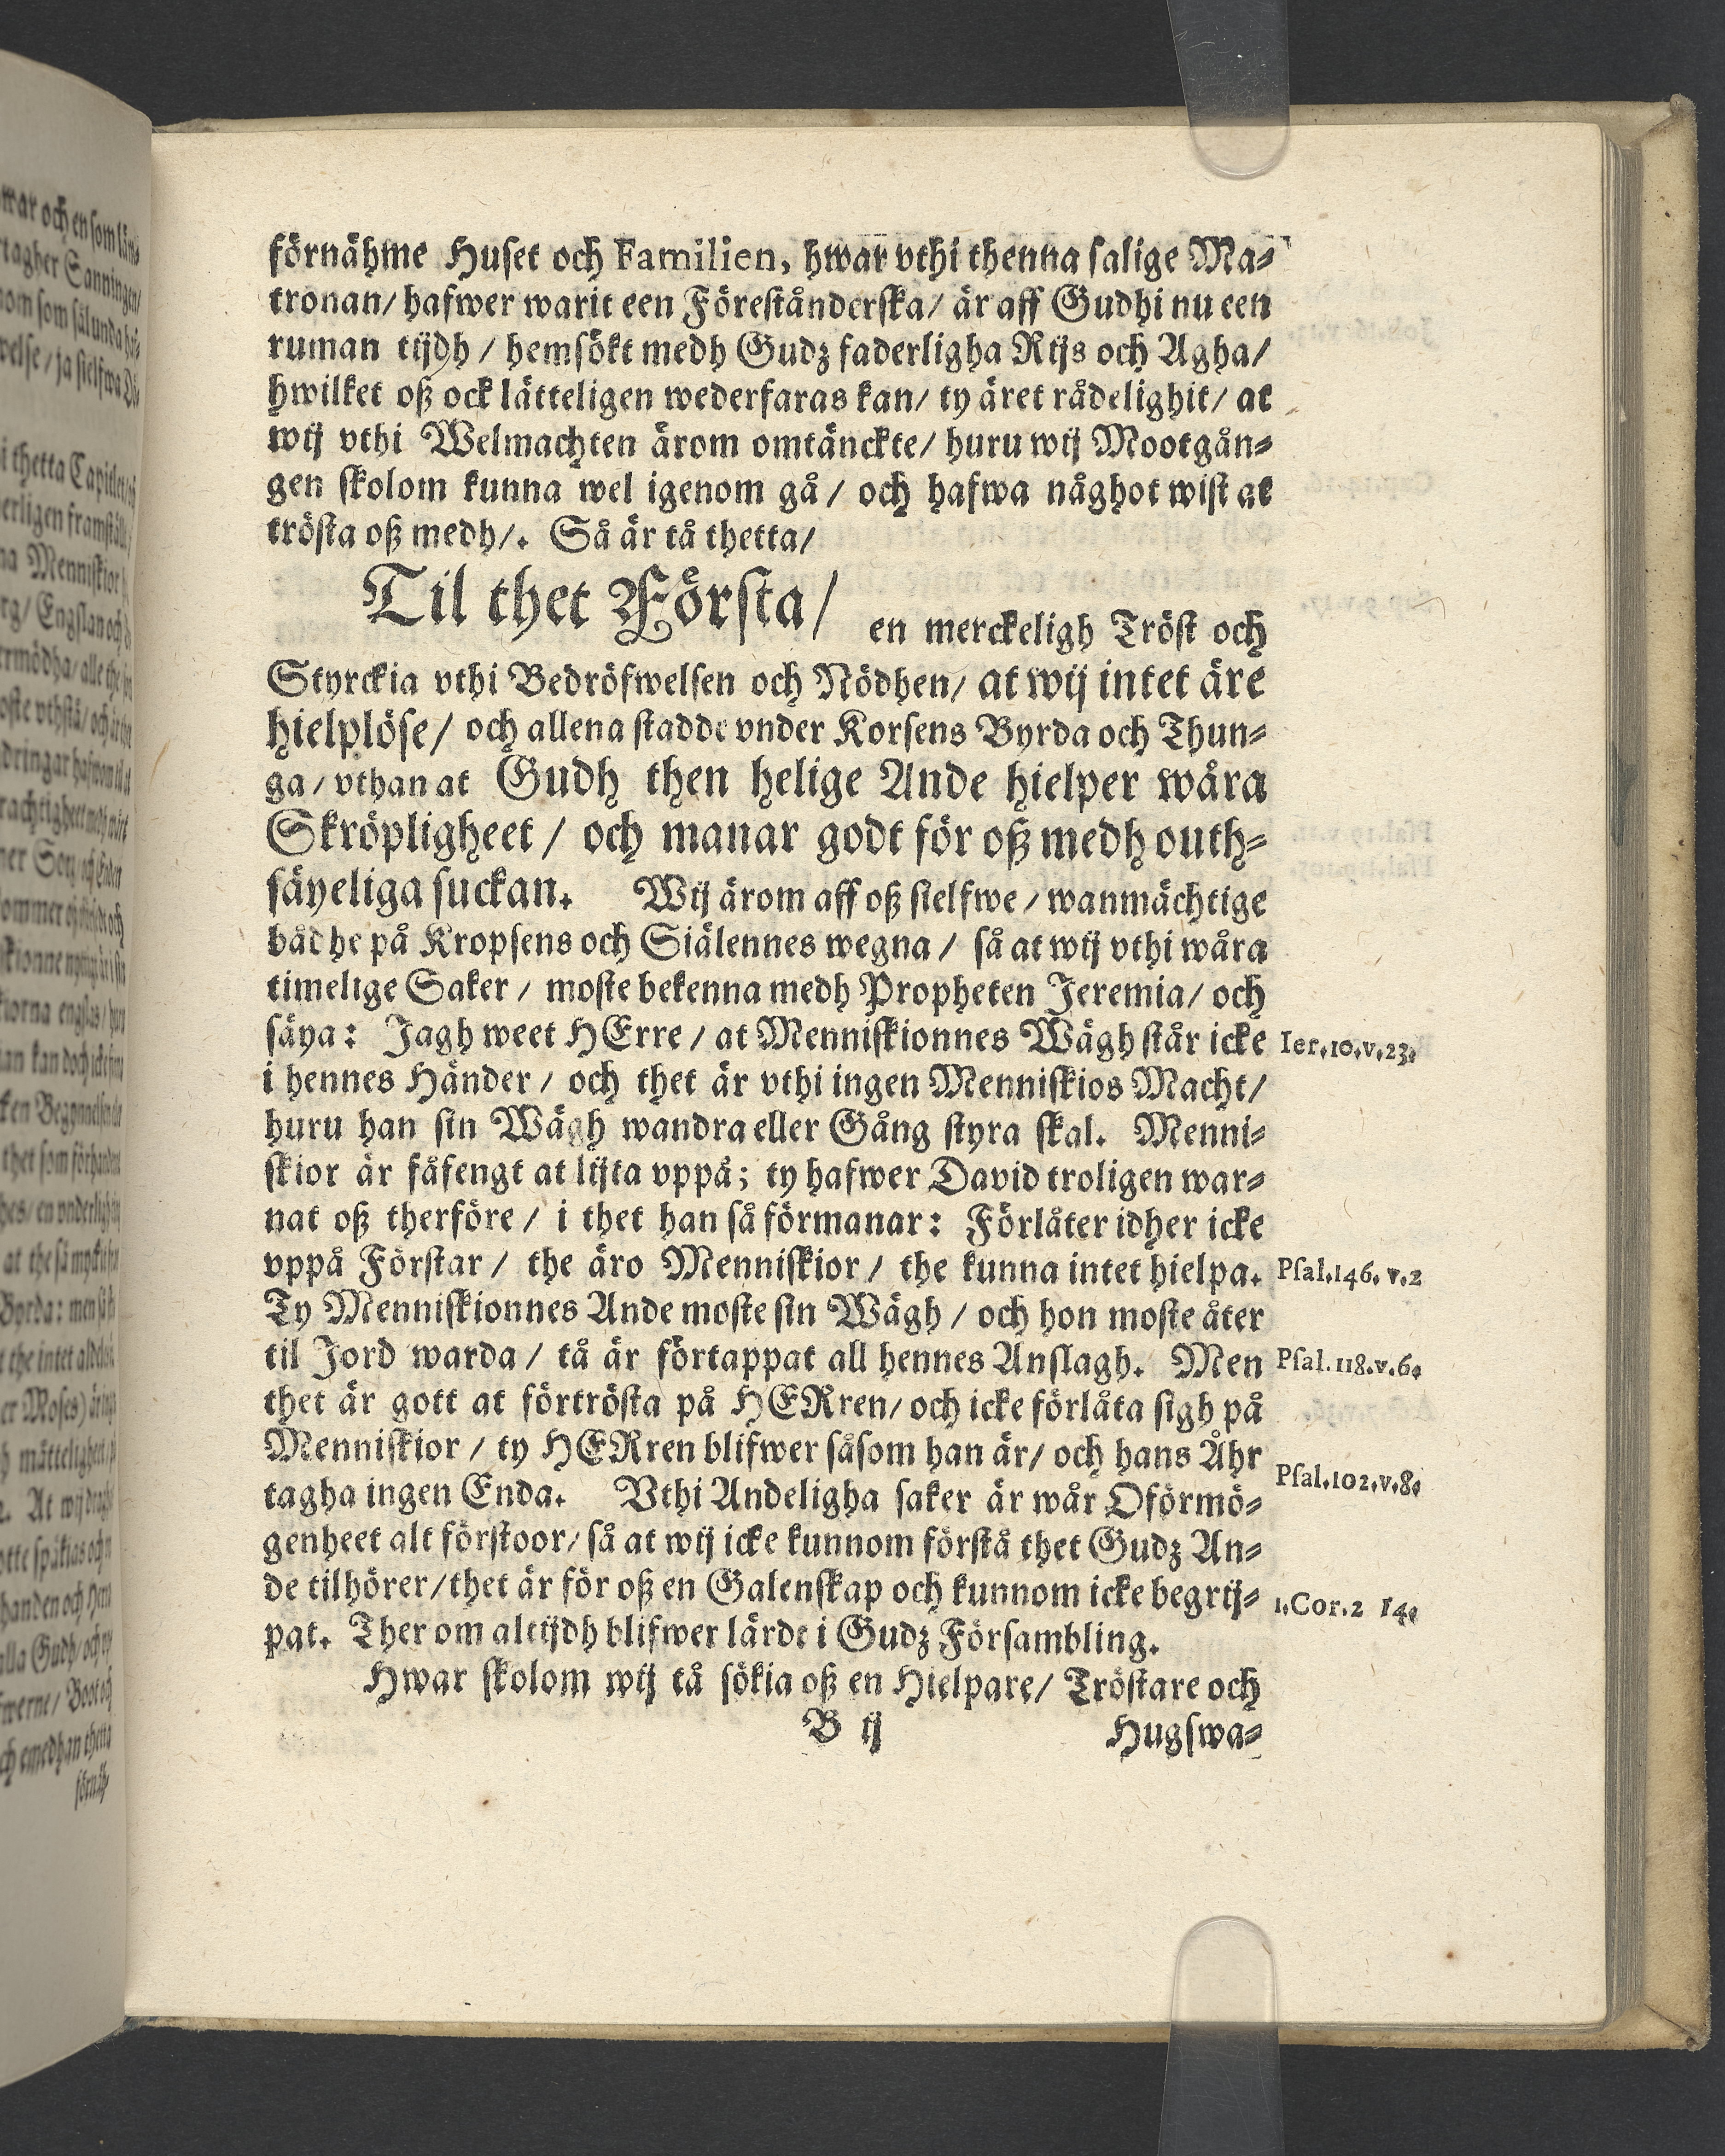 förnähme Huset och Familien, hwar vthi thenna salige Ma-
tronan/ hafwer warit een Föreståndersta/ är aff Gudhi nu een
ruman tijdh / hemsökt medh Gudz faderligha Rijs och Agha/
hwilket oß ock lätteligen wederfaras kan/ ty äret rådelighit/ at
wij vthi Welmachten ärom omtänckte/ huru wij Mootgån-
gen skolom kunna wel igenom gå / och hafwa någhot wist at
trösta oß medh/. Så är tå thetta/
Til thet Första/ en merckeligh Tröst och
Styrckia vthi Bedröfwelsen och Nödhen/ at wij intet äre
hielplöse/ och allena stadde vnder Korsens Byrda och Thun-
ga / vthan at Gudh then helige Ande hielper wåra
Skröpligheet / och manar godt för oß medh outh-
säyeliga suckan. Wij ärom aff oß sielfwe / wanmächtige
bådhe på Kropsens och Siälennes wegna / så at wij vthi wåra
timelige Saker / moste bekenna medh Propheten Jeremia/ och
säya: Jagh weet HErre / at Menniskionnes Wägh står icke Ier.10.v.23.
i hennes Händer / och thet är vthi ingen Menniskios Macht/
huru han sin Wägh wandra eller Gång styra skal. Menni-
skior är fåfengt at lijta vppå; ty hafwer David troligen war-
nat oß therföre / i thet han så förmanar: Förlåter idher icke
vppå Förstar / the äro Menniskior / the kunna intet hielpa. Psal.146. v.2
Ty Menniskionnes Ande moste sin Wägh / och hon moste åter
til Jord warda / tå är förtappat all hennes Anslagh. Men Psal.118.v.6.
thet är gott at förtrösta på HERren/ och icke förlåta sigh på
Menniskior / ty HERren blifwer såsom han är/ och hans Åhr
tagha ingen Enda. Vthi Andeligha saker är wår Oförmö- Psal.102.v.8.
genheet alt förstoor/ så at wij icke kunnom förstå thet Gudz An-
de tilhörer/ thet är för oß en Galenskap och kunnom icke begrij- 1.Cor.2 14.
pat. Ther om altijdh blifwer lärdt i Gudz Försambling.
Hwar skolom wij tå sökia oß en Hielpare/ Tröstare och
B ij Hugswa-